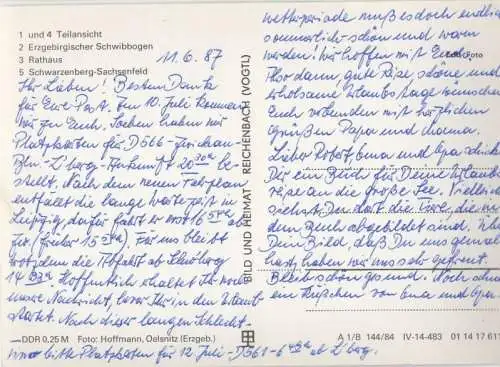 1 und 4 Teilansicht
2 Erzgebirgischer Schwibbogen
3 Rathaus
5 Schwarzenberg-Sachsenfeld
11.6.87
Ihr Lieben! Besten Dank
für Eure Post. Am 10. Juli kommen
wir zu Euch. Soeben haben wir
Platzkarten für D 566 - Zwickau-
Bln-L'berg-Ankunft 20 be-
stellt. Nach dem neuen Fahrplan
entfällt die lange Wartezeit in
Leipzig, dafür fährt er erst 16 ab
(früher 15). Für uns bleibt
trotzdem die Abfahrt ab
14. Hoffentlich erhaltet Ihr noch
unsere Nachricht, bevor Ihr in den Urlaub
startet. Nach dieser langen Schlecht-
wetterperiode muß es doch endlich
sommerlich schön und warm
werden! Wir hoffen mit Euch.
Also dann, gute Reise, schöne und
erholsame Urlaubstage wünschen
Euch verbunden mit herzlichen
Grüßen Papa und Mama.
Lieber Robert, Oma und Opa schicken
Dir ein Buch für Deine Urlaubs-
reise an die große See. Vielleicht
siehst Du dort die Tiere, die in
dem Buch abgebildet sind. Über
Dein Bild, daß Du uns gemalt
hast, haben wir uns sehr gefreut.
Bleib schön gesund. Noch
ein Küßchen von Oma und Opa
bitte Platzkarten für 12. Juli - D 561 - 6 ab L'berg.
BILD UND HEIMAT REICHENBACH (VOGTL)
Foto
DDR 0,25 M Foto: Hoffmann, Oelsnitz (Erzgeb.)
A 1/B 144/84 IV-14-483 01 14 17 61